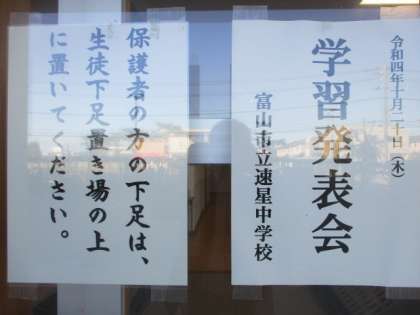 令和四年十月二十日(木)
学習発表会
富山市立速星中学校
保護者の方の下足は、
生徒下足置き場の上
に置いてください。